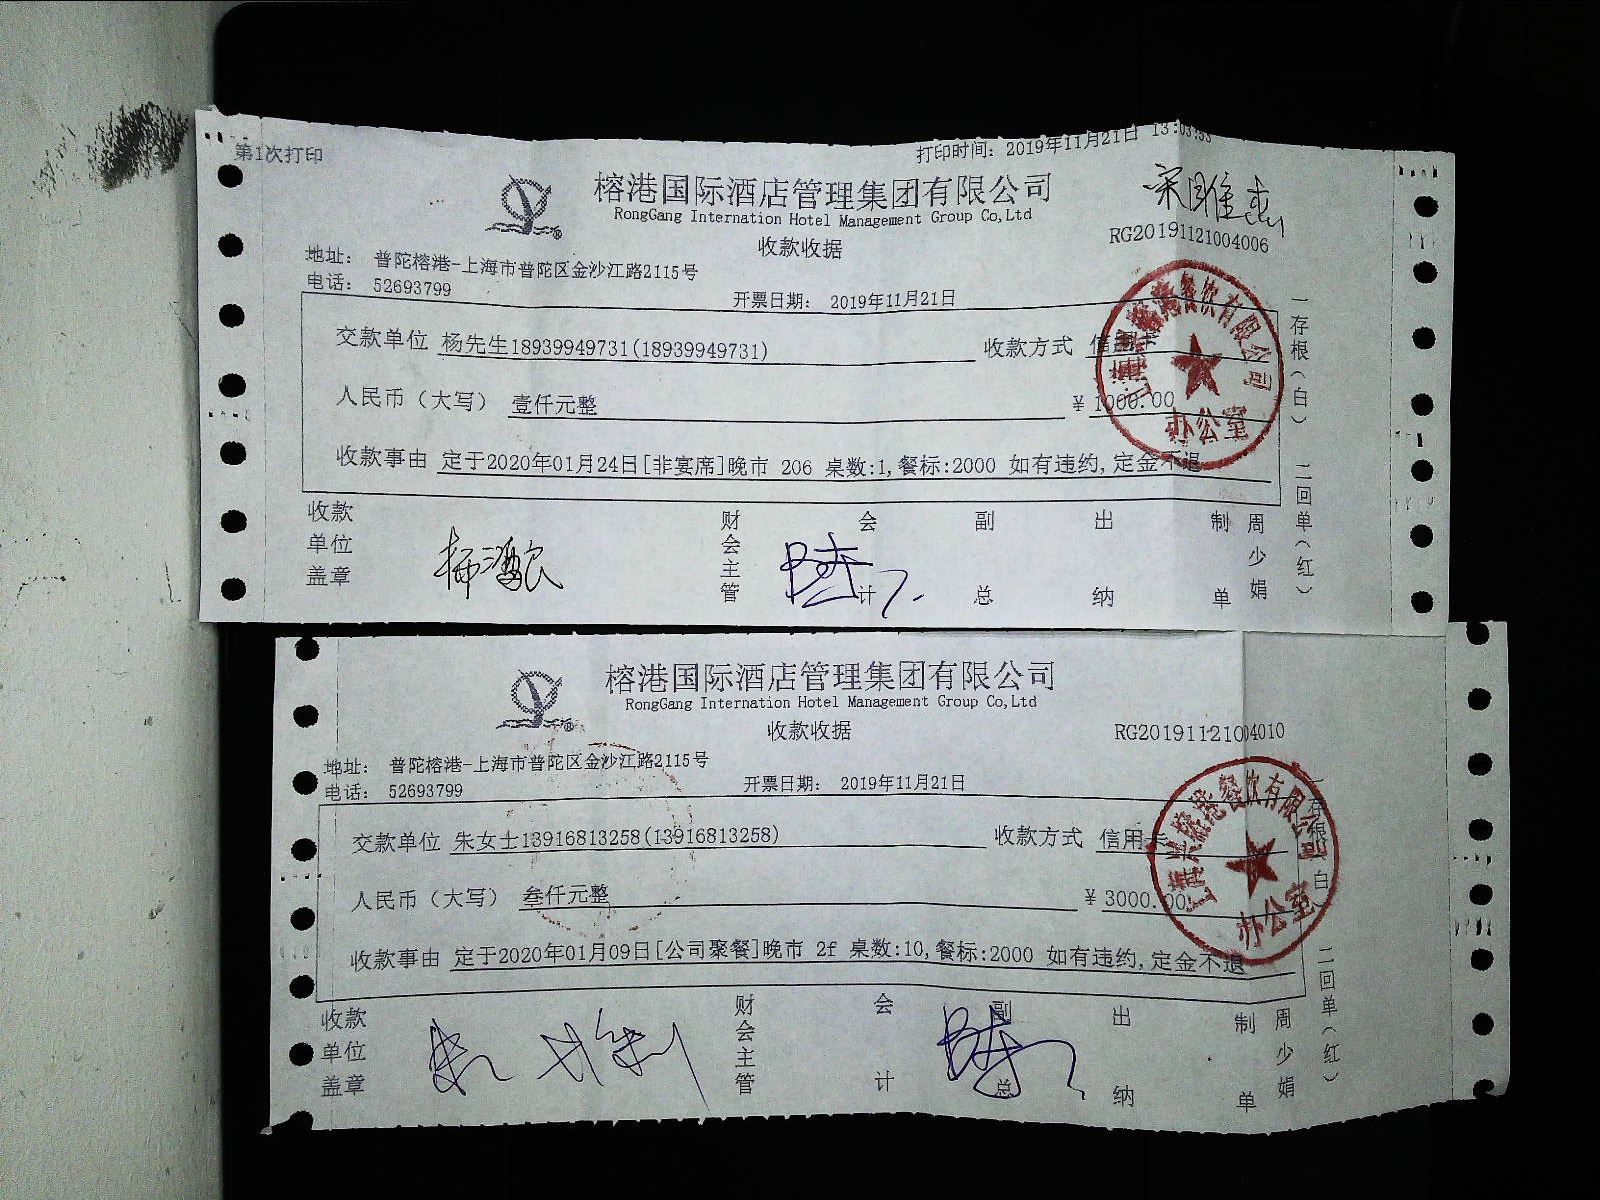 第1次打印
打印时间: 2019年11月21日 13:03:53
榕港国际酒店管理集团有限公司
RongGang Internation Hotel Management Group Co,Ltd
收款收据
RG20191121004006
地址: 普陀榕港-上海市普陀区金沙江路2115号
电话: 52693799
开票日期: 2019年11月21日
交款单位 杨先生18939949731(18939949731) 收款方式 信用卡
人民币（大写） 壹仟元整 ¥ 1000.00
收款事由 定于2020年01月24日[非宴席]晚市 206 桌数:1,餐标:2000 如有违约,定金不退
收款单位盖章 财会主管 会计 副总 出纳 制单 周少娟
一存根(白) 二回单(红)
餐饮有限公司
办公室
榕港国际酒店管理集团有限公司
RongGang Internation Hotel Management Group Co,Ltd
收款收据
RG20191121004010
地址: 普陀榕港-上海市普陀区金沙江路2115号
电话: 52693799
开票日期: 2019年11月21日
交款单位 朱女士13916813258(13916813258) 收款方式 信用卡
人民币（大写） 叁仟元整 ¥ 3000.00
收款事由 定于2020年01月09日[公司聚餐]晚市 2f 桌数:10,餐标:2000 如有违约,定金不退
收款单位盖章 财会主管 会计 副总 出纳 制单 周少娟
一存根(白) 二回单(红)
餐饮有限公司
办公室